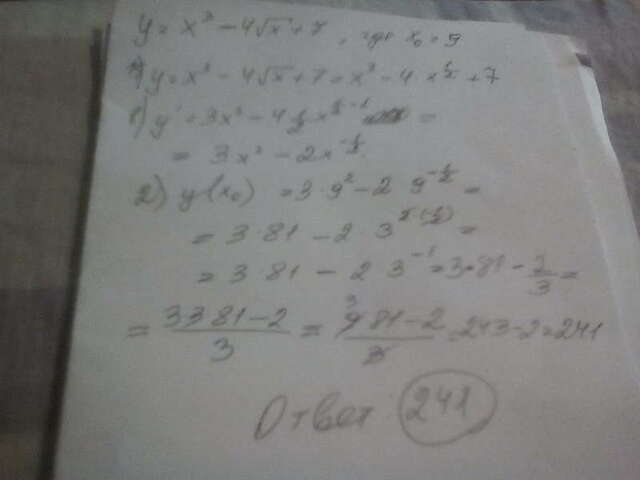 y = x³ - 4√x + 7, где x₀ = 9
y = x³ - 4√x + 7 = x³ - 4 x^½ + 7
1) y' = 3x² - 4 ½ x^(½ - 1) =
= 3x² - 2x^(-½)
2) y'(x₀) = 3·9² - 2 9^(-½) =
= 3·81 - 2 3^(2(-½)) =
= 3 81 - 2 3^(-1) = 3·81 - 2/3 =
= (3 3 81 - 2)/3 = (9 81 - 2)/3 243 - 2 = 241
Ответ 241